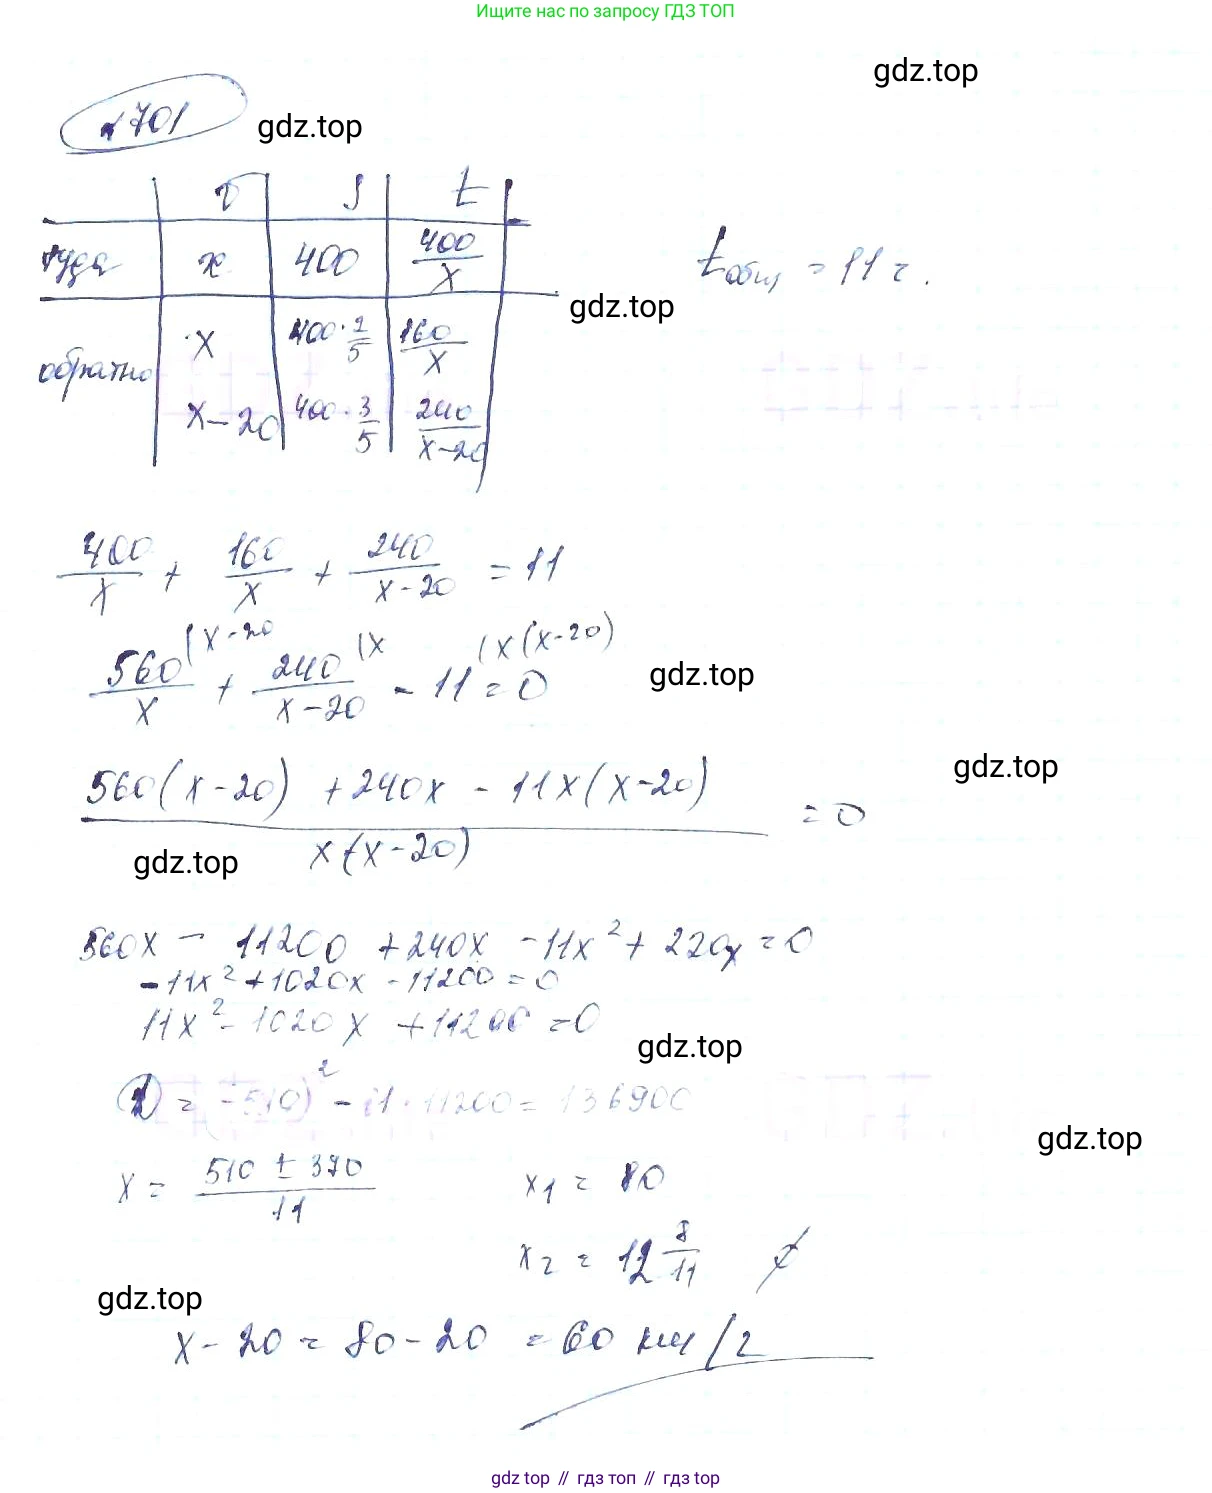 Ищите нас по запросу ГДЗ ТОП
gdz.top
№701
gdz.top
v S t
туда x 400 400/x
tобщ = 11 ч.
gdz.top
обратно x 400·2/5 160/x
x-20 400·3/5 240/x-20
400/x + 160/x + 240/x-20 = 11
560/x (x-20 + 240/x-20 (x - 11 = 0 (x(x-20)
gdz.top
560(x-20) +240x - 11x(x-20) / x(x-20) = 0
gdz.top
gdz.top
560x - 11200 +240x -11x² + 220x = 0
-11x² +1020x -11200 = 0
11x² - 1020x +11200 = 0
gdz.top
D = (-510)² - 11·11200 = 136900
gdz.top
x = 510 ± 370 / 11 x1 = 80
x2 = 12 8/11
gdz.top
x - 20 = 80 - 20 = 60 км/ч
gdz top // гдз топ // гдз top